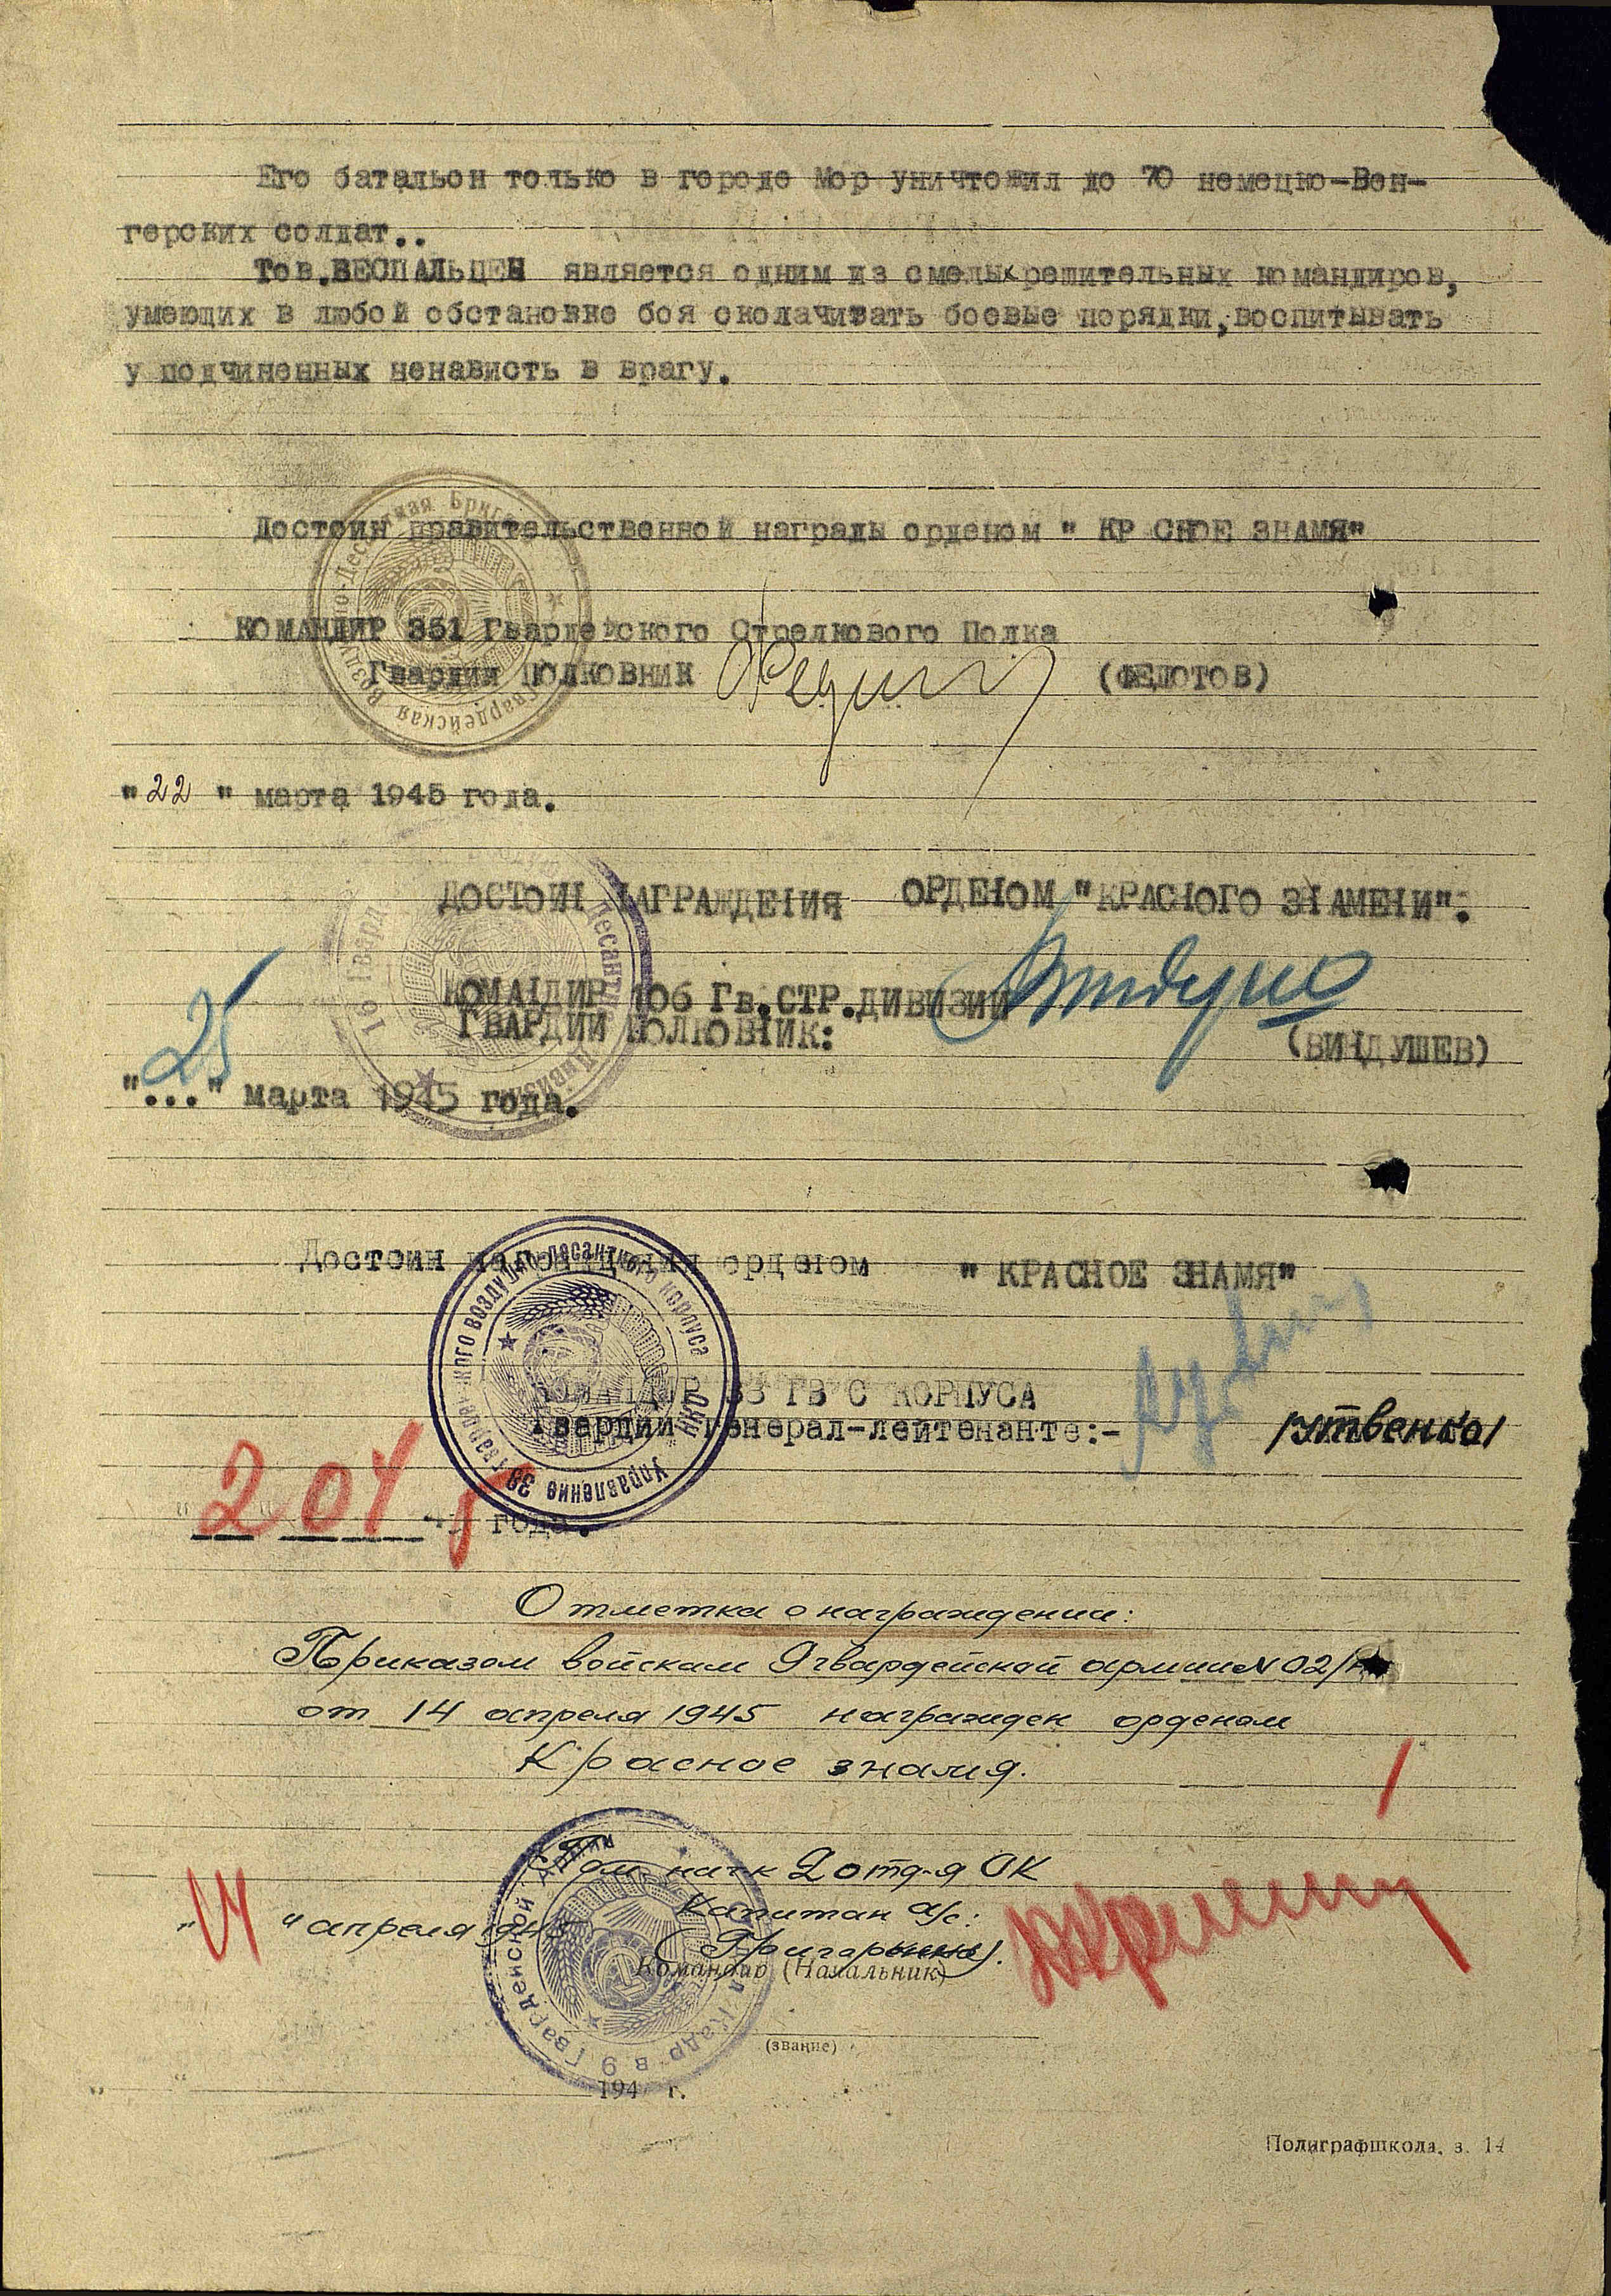 Его батальон только в городе Мор уничтожил до 70 немецко-Вен-
герских солдат..
Тов.БЕСПАЛЬЦЕВ является одним из смелых решительных командиров,
умеющих в любой обстановке боя сколачивать боевые порядки,воспитывать
у подчиненных ненависть в врагу.
Достоин правительственной награды орденом " КР СНОЕ ЗНАМЯ"
КОМАНДИР 351 Гвардейского Стрелкового Полка
Гвардии ПОЛКОВНИК (ФЕДОТОВ)
"22 " марта 1945 года.
ДОСТОИН НАГРАЖДЕНИЯ ОРДЕНОМ "КРАСНОГО ЗНАМЕНИ".
КОМАНДИР 106 Гв.СТР.ДИВИЗИИ
ГВАРДИИ ПОЛКОВНИК: (ВИНДУШЕВ)
"25" марта 1945 года.
Достоин награждения орденом " КРАСНОЕ ЗНАМЯ"
КОМАНДИР 38 ГВ С КОРПУСА
Гвардии генерал-лейтенант:- /утвенко/
"2" 04 45 года.
Отметка о награждении:
Приказом войскам 9 гвардейской армии N 02/н
от 14 апреля 1945 награжден орденом
Красное знамя.
Пом. нач-к 2 отд-я ОК
Капитан а/с:
"14" апреля 1945
Командир (Начальник)
(звание)
" " 194 г.
Полиграфшкола, з. 14